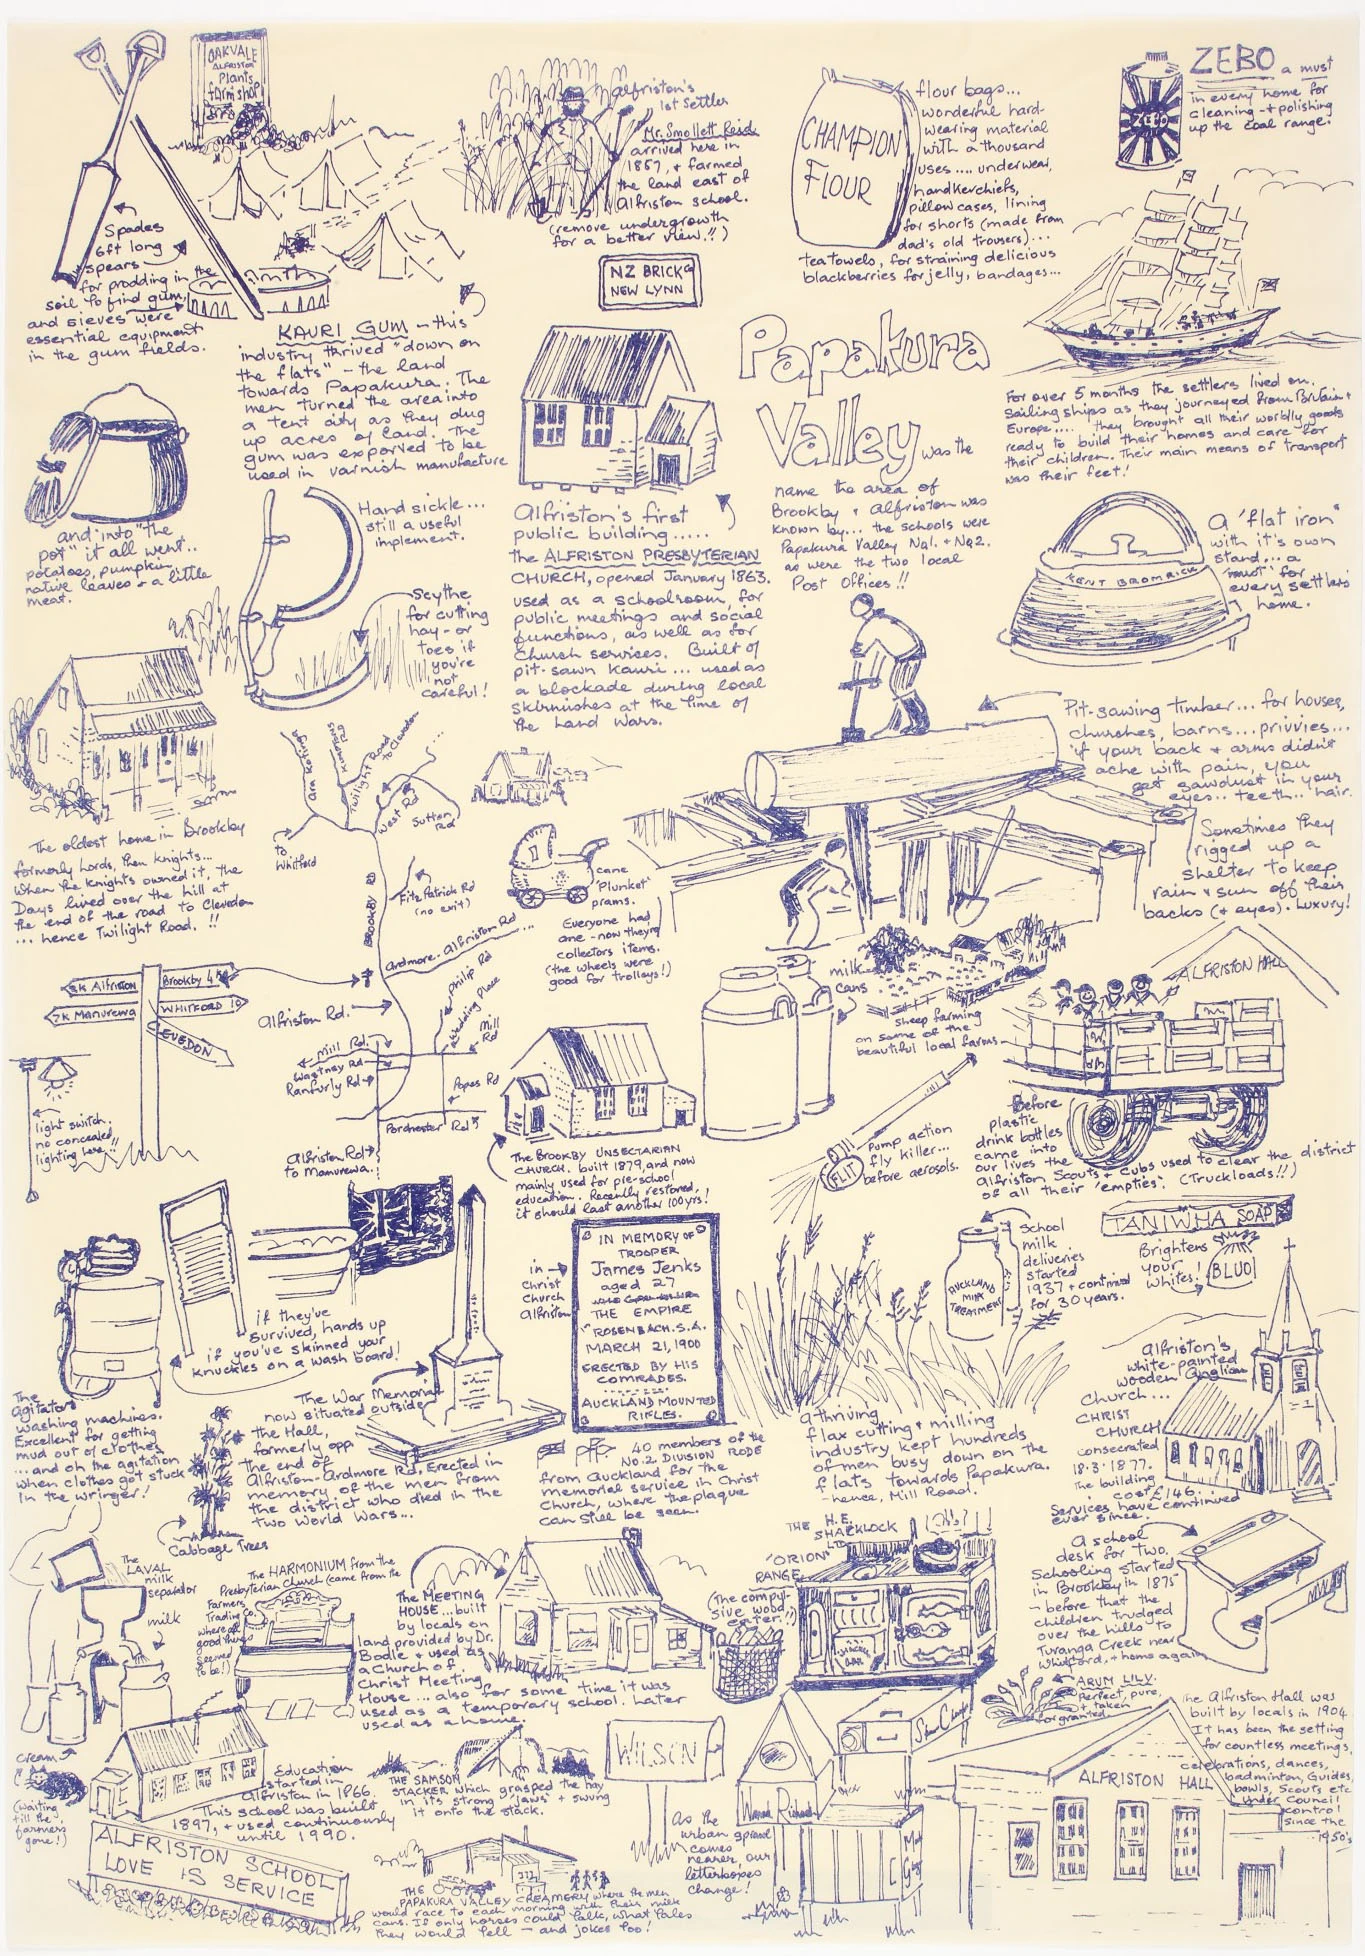 OAKVALE
ALFRISTON
Plants
farm shop
Spades
6ft long
spears
for prodding in the
soil to find gum,
and sieves were
essential equipment
in the gum fields.
KAURI GUM - this
industry thrived "down on
the flats" - the land
towards Papakura. The
men turned the area into
a tent city as they dug
up acres of land. The
gum was exported to be
used in varnish manufacture
Alfriston's
1st Settler
Mr. Smollett Reid
arrived here in
1857, + farmed
the land east of
Alfriston school.
(remove undergrowth
for a better view!!)
NZ BRICK Co
NEW LYNN
CHAMPION
FLOUR
flour bags...
wonderful hard-
wearing material
with a thousand
uses.... underwear,
handkerchiefs,
pillow cases, lining
for shorts (made from
dad's old trousers)...
tea towels, for straining delicious
blackberries for jelly, bandages...
ZEBO a must
in every home for
cleaning + polishing
up the coal range.
ZEBO
Papakura
Valley was the
name the area of
Brookby + Alfriston was
known by... the schools were
Papakura Valley No1. + No2.
as were the two local
Post Offices!!
For over 5 months the settlers lived on
sailing ships as they journeyed from Britain +
Europe.... they brought all their worldly goods
ready to build their homes and care for
their children. Their main means of transport
was their feet!
and into "the
pot" it all went..
potatoes, pumpkin,
native leaves + a little
meat.
Hand sickle...
still a useful
implement.
Scythe
for cutting
hay - or
toes if
you're
not
careful!
Alfriston's first
public building.....
the ALFRISTON PRESBYTERIAN
CHURCH, opened January 1863.
used as a schoolroom, for
public meetings and social
functions, as well as for
church services. Built of
pit-sawn Kauri... used as
a blockade during local
skirmishes at the time of
the Land Wars.
A 'flat iron"
with it's own
stand... a
'must' for
every settlers
home.
KENT BROMRICK
Pit-sawing timber... for houses,
churches, barns... privvies...
if your back + arms didn't
ache with pain, you
get sawdust in your
eyes.. teeth.. hair.
Sometimes they
rigged up a
shelter to keep
rain + sun off their
backs (+ eyes). Luxury!
The oldest home in Brookby
formerly Lords, then Knights...
When the Knights owned it, the
Days lived over the hill at
the end of the road to Clevedon
... hence Twilight Road. !!
Twilight Road
to Clevedon
West Rd
Sutton
Rd
to
Whitford
BROOKBY RD
Fitz Patrick Rd
(no exit)
Ardmore. Alfriston Rd
Philip Rd
Mill
Rd
Alfriston Rd.
Mill Rd.
Wastney Rd
Ranfurly Rd
Popes Rd
Porchester Rd
Alfriston Rd
to Manurewa.
cane
'Plunket'
prams.
Everyone had
one - now they're
collectors items.
(the wheels were
good for trolleys!)
5K Alfriston
Brookby 4K
7K Manurewa
WHITFORD 10
CLEVEDON
light switch.
no concealed
lighting here!!
The BROOKBY UNSECTARIAN
CHURCH. built 1879, and now
mainly used for pre-school
education. Recently restored,
it should last another 100yrs!
milk
cans
Sheep farming
on some of the
beautiful local farms
ALFRISTON HALL
Before
plastic
drink bottles
came into
our lives the
Alfriston Scouts + Cubs used to clear the district
of all their 'empties'. (Truckloads!!)
FLIT
Pump action
fly killer...
before aerosols.
The
Agitator
washing machines.
Excellent for getting
mud out of clothes
...and oh the agitation
when clothes got stuck
in the wringer!
if they've
survived, hands up
if you've skinned your
knuckles on a wash board!
The War Memorial
now situated outside
the Hall,
formerly opp.
the end of
Alfriston-Ardmore Rd, Erected in
memory of the men from
the district who died in the
two World Wars...
Cabbage Trees
in
Christ
Church
Alfriston
IN MEMORY OF
TROOPER
James Jenks
aged 27
THE EMPIRE
ROSENBACH. S.A.
MARCH 21, 1900
ERECTED BY HIS
COMRADES.
AUCKLAND MOUNTED
RIFLES.
40 members of the
NO.2. DIVISION RODE
from Auckland for the
memorial service in Christ
Church, where the plaque
can still be seen.
School
milk
deliveries
started
1937 + continued
for 30 years.
AUCKLAND
MILK
TREATMENT
a thriving
flax cutting + milling
industry kept hundreds
of men busy down on the
flats towards Papakura.
- hence, Mill Road.
TANIWHA SOAP
Brightens
your
whites!
BLUO
Alfriston's
white-painted
wooden Anglican
Church...
CHRIST
CHURCH
consecrated
18.3.1877.
The building
cost £146.
Services have continued
ever since.
A school
desk for two.
Schooling started
in Brookby in 1875
- before that the
children trudged
over the hills to
Turanga Creek near
Whitford, + home again
The
LAVAL
milk
separator
milk
cream
(waiting
till the
farmers
gone!)
The HARMONIUM from the
Presbyterian Church (came from the
Farmers
Trading Co.
where all
good things
seemed
to be!)
The MEETING
HOUSE... built
by locals on
land provided by Dr.
Bodle + used as
a Church of
Christ Meeting
House... also for some time it was
used as a temporary school. Later
used as a home.
THE H.E.
SHACKLOCK
LTD
'ORION'
RANGE
(The compul-
sive wood
eater!!)
SHACKLOCK
ORION
ARUM LILY.
Perfect, pure,
+ taken
for granted
Education
started in
Alfriston in 1866.
This school was built
1897, + used continuously
until 1990.
ALFRISTON SCHOOL
LOVE IS SERVICE
THE SAMSON
STACKER which grasped the hay
in its strong 'jaws' + swung
it onto the stack.
THE
PAPAKURA VALLEY CREAMERY where the men
would race to each morning with their milk
cans. If only horses could talk, what tales
they would tell - and jokes too!
WILSON
As the
urban sprawl
comes
nearer, our
letterboxes
change!
ALFRISTON HALL
The Alfriston Hall was
built by locals in 1904
It has been the setting
for countless meetings,
celebrations, dances,
badminton, Guides,
bowls, Scouts etc
Under Council
control
since the
1950's